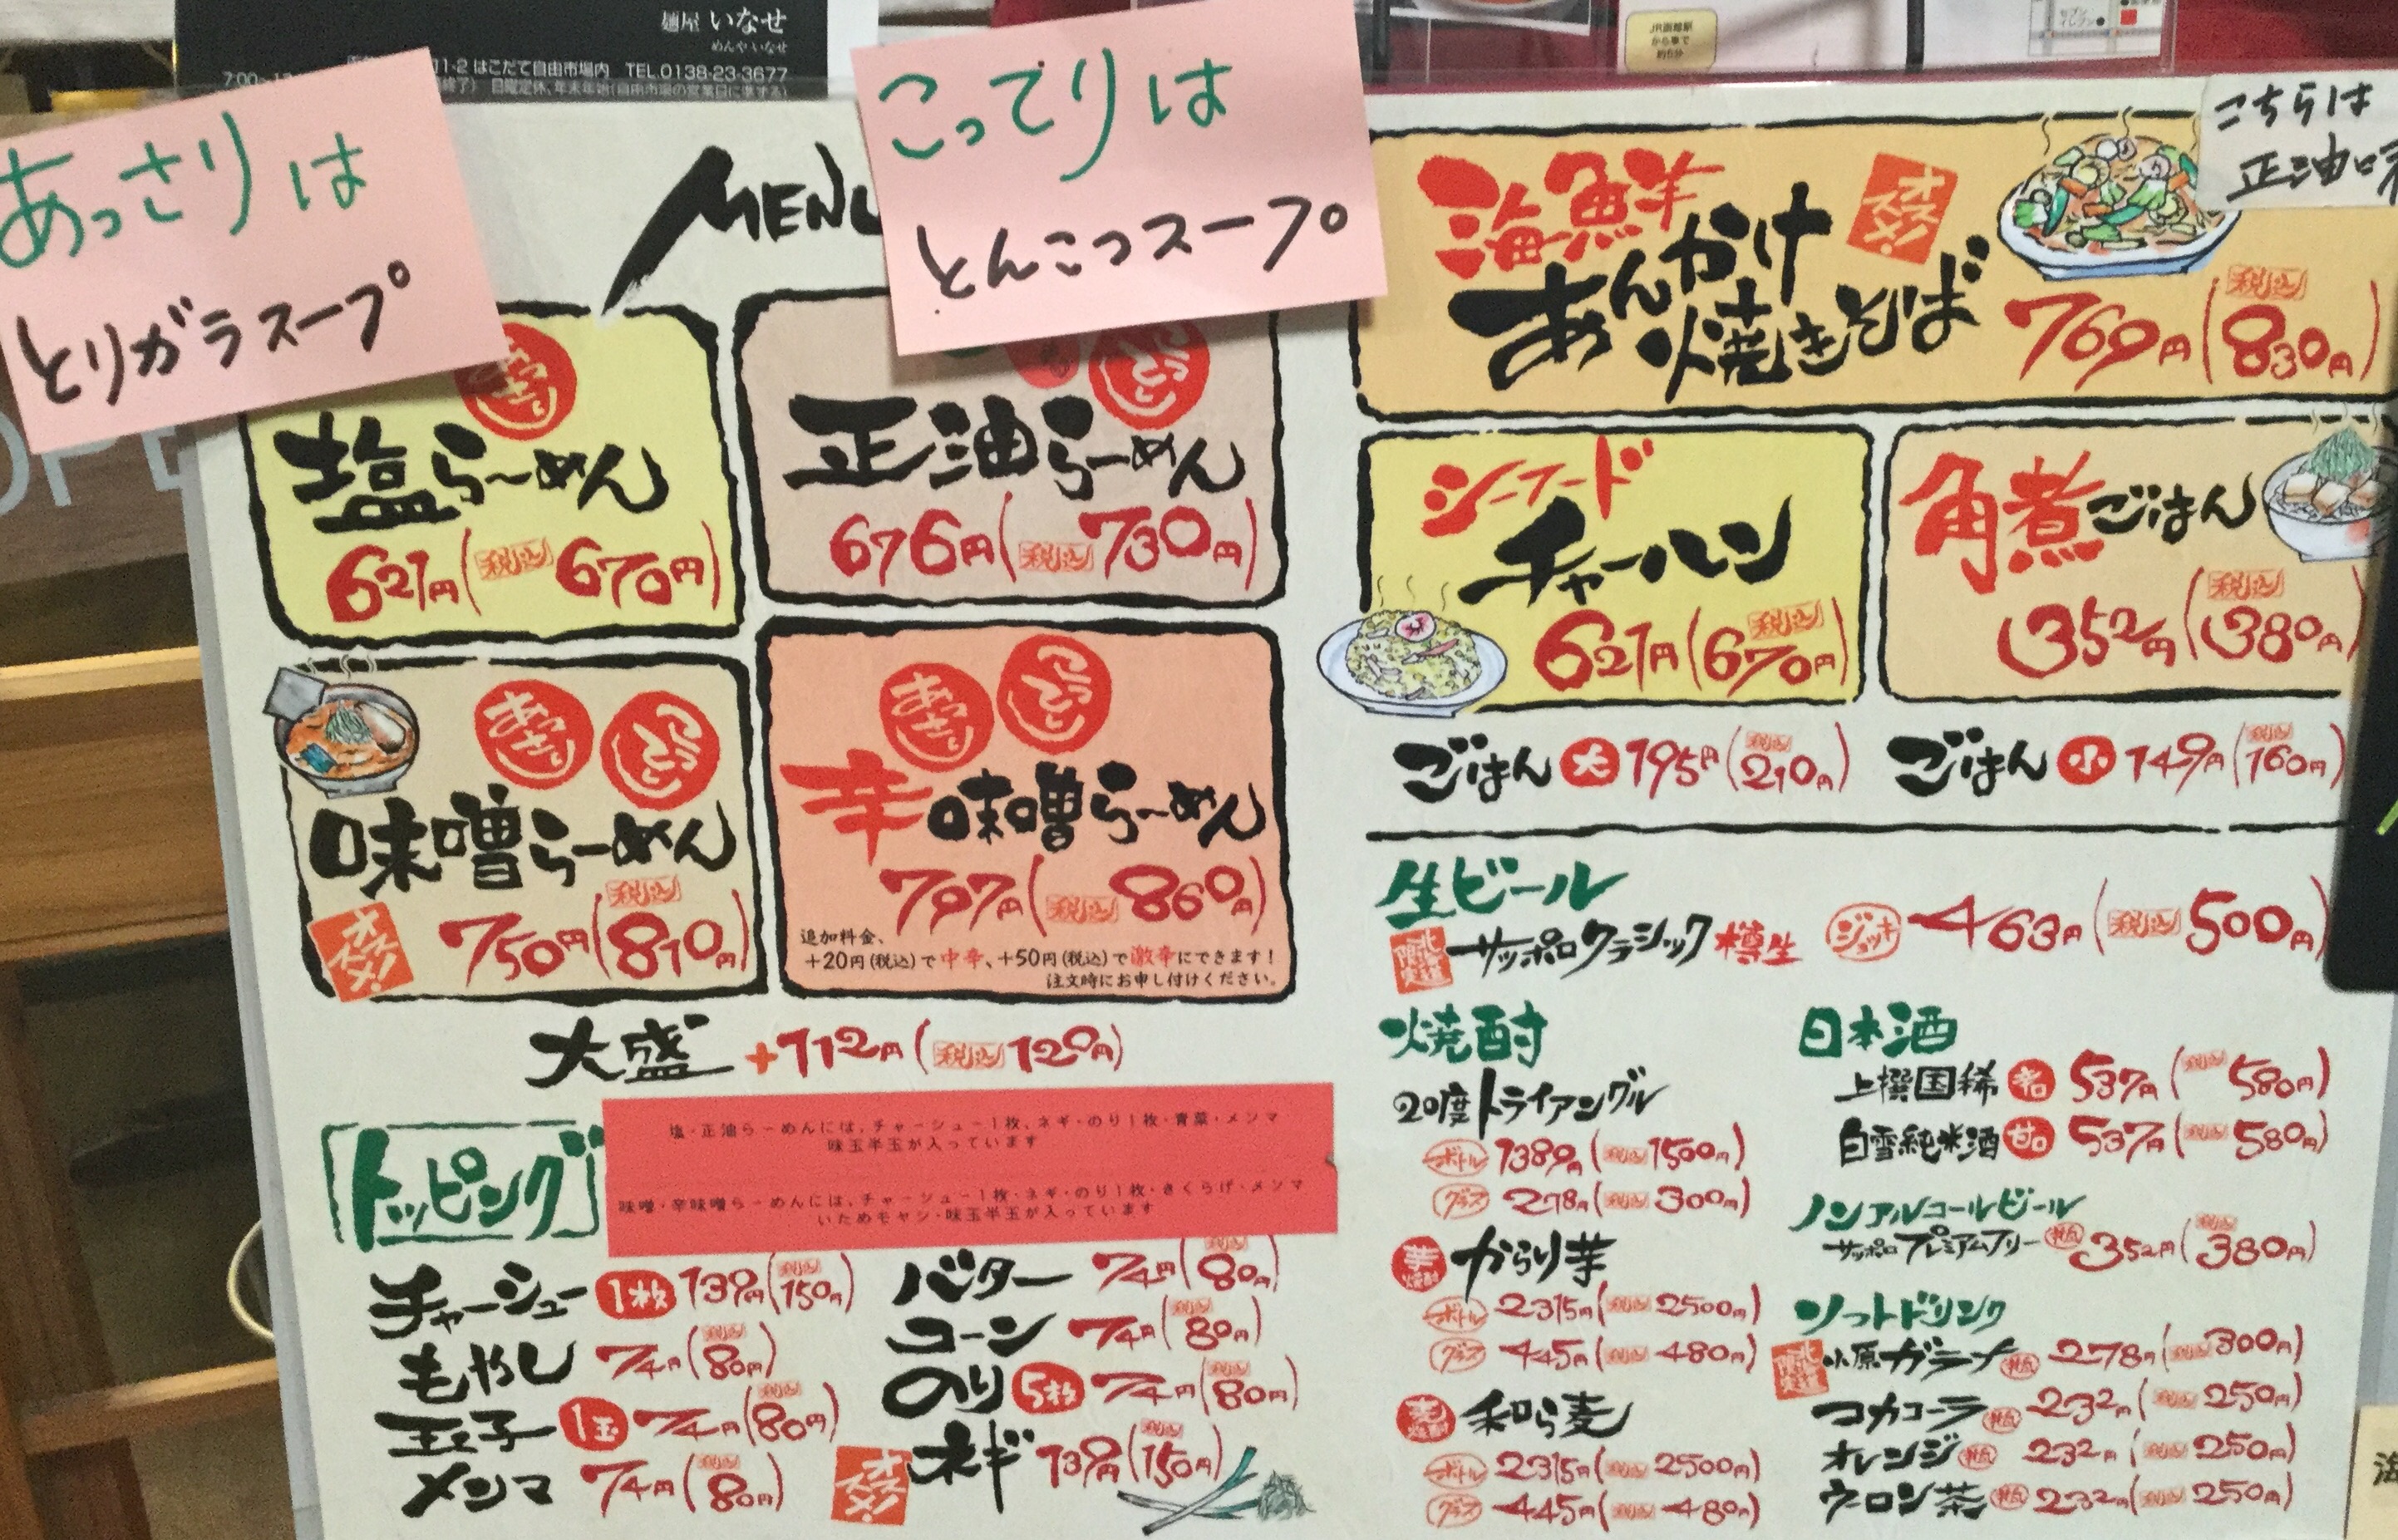 麺屋 いなせ
めんや いなせ
1-2 はこだて自由市場内 TEL.0138-23-3677
7:00~
終了) 日曜定休、年末年始(自由市場の営業日に準ずる)
JR函館駅
から車で
約5分
セブン
イレブン
あっさりは
とりガラスープ
こってりは
とんこつスープ
こちらは
正油味
OPE
MENU
あっさり
塩らーめん
621円(税込 670円)
こってり
正油らーめん
676円(税込 730円)
あっさり こってり
味噌らーめん
オススメ!
750円(税込 810円)
あっさり こってり
辛味噌らーめん
797円(税込 860円)
追加料金、
+20円(税込)で中辛、+50円(税込)で激辛にできます!
注文時にお申し付けください。
大盛 +112円(税込 120円)
トッピング
塩・正油らーめんには、チャーシュー1枚、ネギ・のり1枚・青菜・メンマ
味玉半玉が入っています
味噌・辛味噌らーめんには、チャーシュー1枚・ネギ・のり1枚・きくらげ・メンマ
いためモヤシ・味玉半玉が入っています
チャーシュー 1枚 139円(税込 150円)
もやし 74円(税込 80円)
玉子 1玉 74円(税込 80円)
メンマ 74円(税込 80円)
バター 74円(税込 80円)
コーン 74円(税込 80円)
のり 5枚 74円(税込 80円)
オススメ! ネギ 139円(税込 150円)
海鮮
あんかけ
焼きそば
オススメ!
769円(税込 830円)
シーフード
チャーハン
621円(税込 670円)
角煮ごはん
352円(税込 380円)
ごはん 大 195円(税込 210円)
ごはん 小 149円(税込 160円)
生ビール
北海道限定 サッポロクラシック 樽生 ジョッキ 463円(税込 500円)
焼酎
20度トライアングル
ボトル 1389円(税込 1500円)
グラス 278円(税込 300円)
芋焼酎 からり芋
ボトル 2315円(税込 2500円)
グラス 445円(税込 480円)
麦焼酎 和ら麦
ボトル 2315円(税込 2500円)
グラス 445円(税込 480円)
日本酒
上撰国稀 辛口 537円(税込 580円)
白雪純米酒 甘口 537円(税込 580円)
ノンアルコールビール
サッポロプレミアムフリー 瓶 352円(税込 380円)
ソフトドリンク
北海道限定 小原ガラナ 瓶 278円(税込 300円)
コカコーラ 瓶 232円(税込 250円)
オレンジ 瓶 232円(税込 250円)
ウーロン茶 瓶 232円(税込 250円)